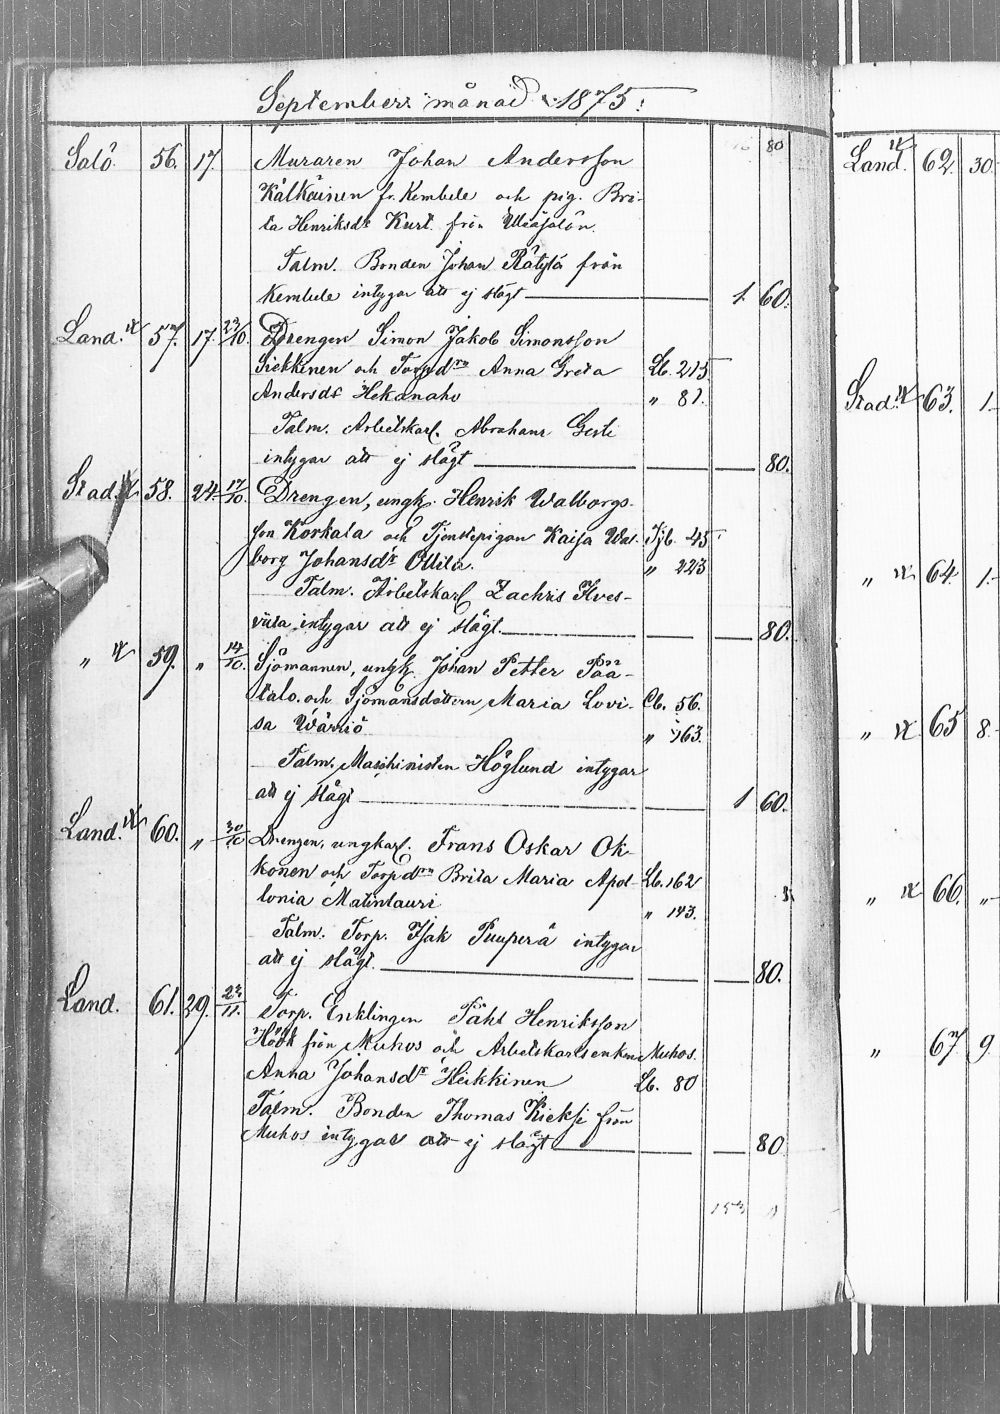 September månad 1875.
80
Salö 56. 17. Muraren Johan Andersson
Kälkäinen fr. Kembele och pig. Bri-
ta Henriksdr Kurt från Uleåsalön.
Talm. Bonden Johan Rätylä från
Kembele intygar att ej slägt 1. 60.
Land. 57. 17. 23/10. Drengen Simon Jakob Simonsson
Siekkinen och Torpdrn Anna Greta Lb. 215
Andersdr Hekanaho " 81.
Talm. Arbetskarl. Abraham
intygar att ej slägt 80.
Stad. 58. 24. 17/10. Drengen, ungk. Henrik Walborgs-
son Korkala och Tjenstepigan Kaisa Wal- Tjb. 45
borg Johansdr Ollila. " 223
Talm. Arbetskarl Zachris
intygar att ej slägt. 80.
" 59. " 14/10 Sjömannen, ungk. Johan Petter Pää-
talo och Sjömansdottern Maria Lovi- Cb. 56.
sa Wärriö " 163.
Talm. Maschinisten Höglund intygar
att ej slägt 1 60.
Land. 60. " 30/10 Drengen, ungkarl. Frans Oskar Ok-
konen och Torpdrn Brita Maria Apol- Lb. 162
lonia Matinlauri " 143.
Talm. Torp. Isak Puuperä intygar
att ej slägt. 80.
Land. 61. 29. Torp. Enklingen Påhl Henriksson
Höök från Muhos och Arbetskarlsenkan Muhos.
Anna Johansdr Heikkinen Lb. 80
Talm. Bonden Thomas Kieksi från
Muhos intygar att ej slägt 80
153
Land. 62. 30.
Stad. 63. 1.
" 64. 1.
" 65 8.
" 66. "
" 67 9.